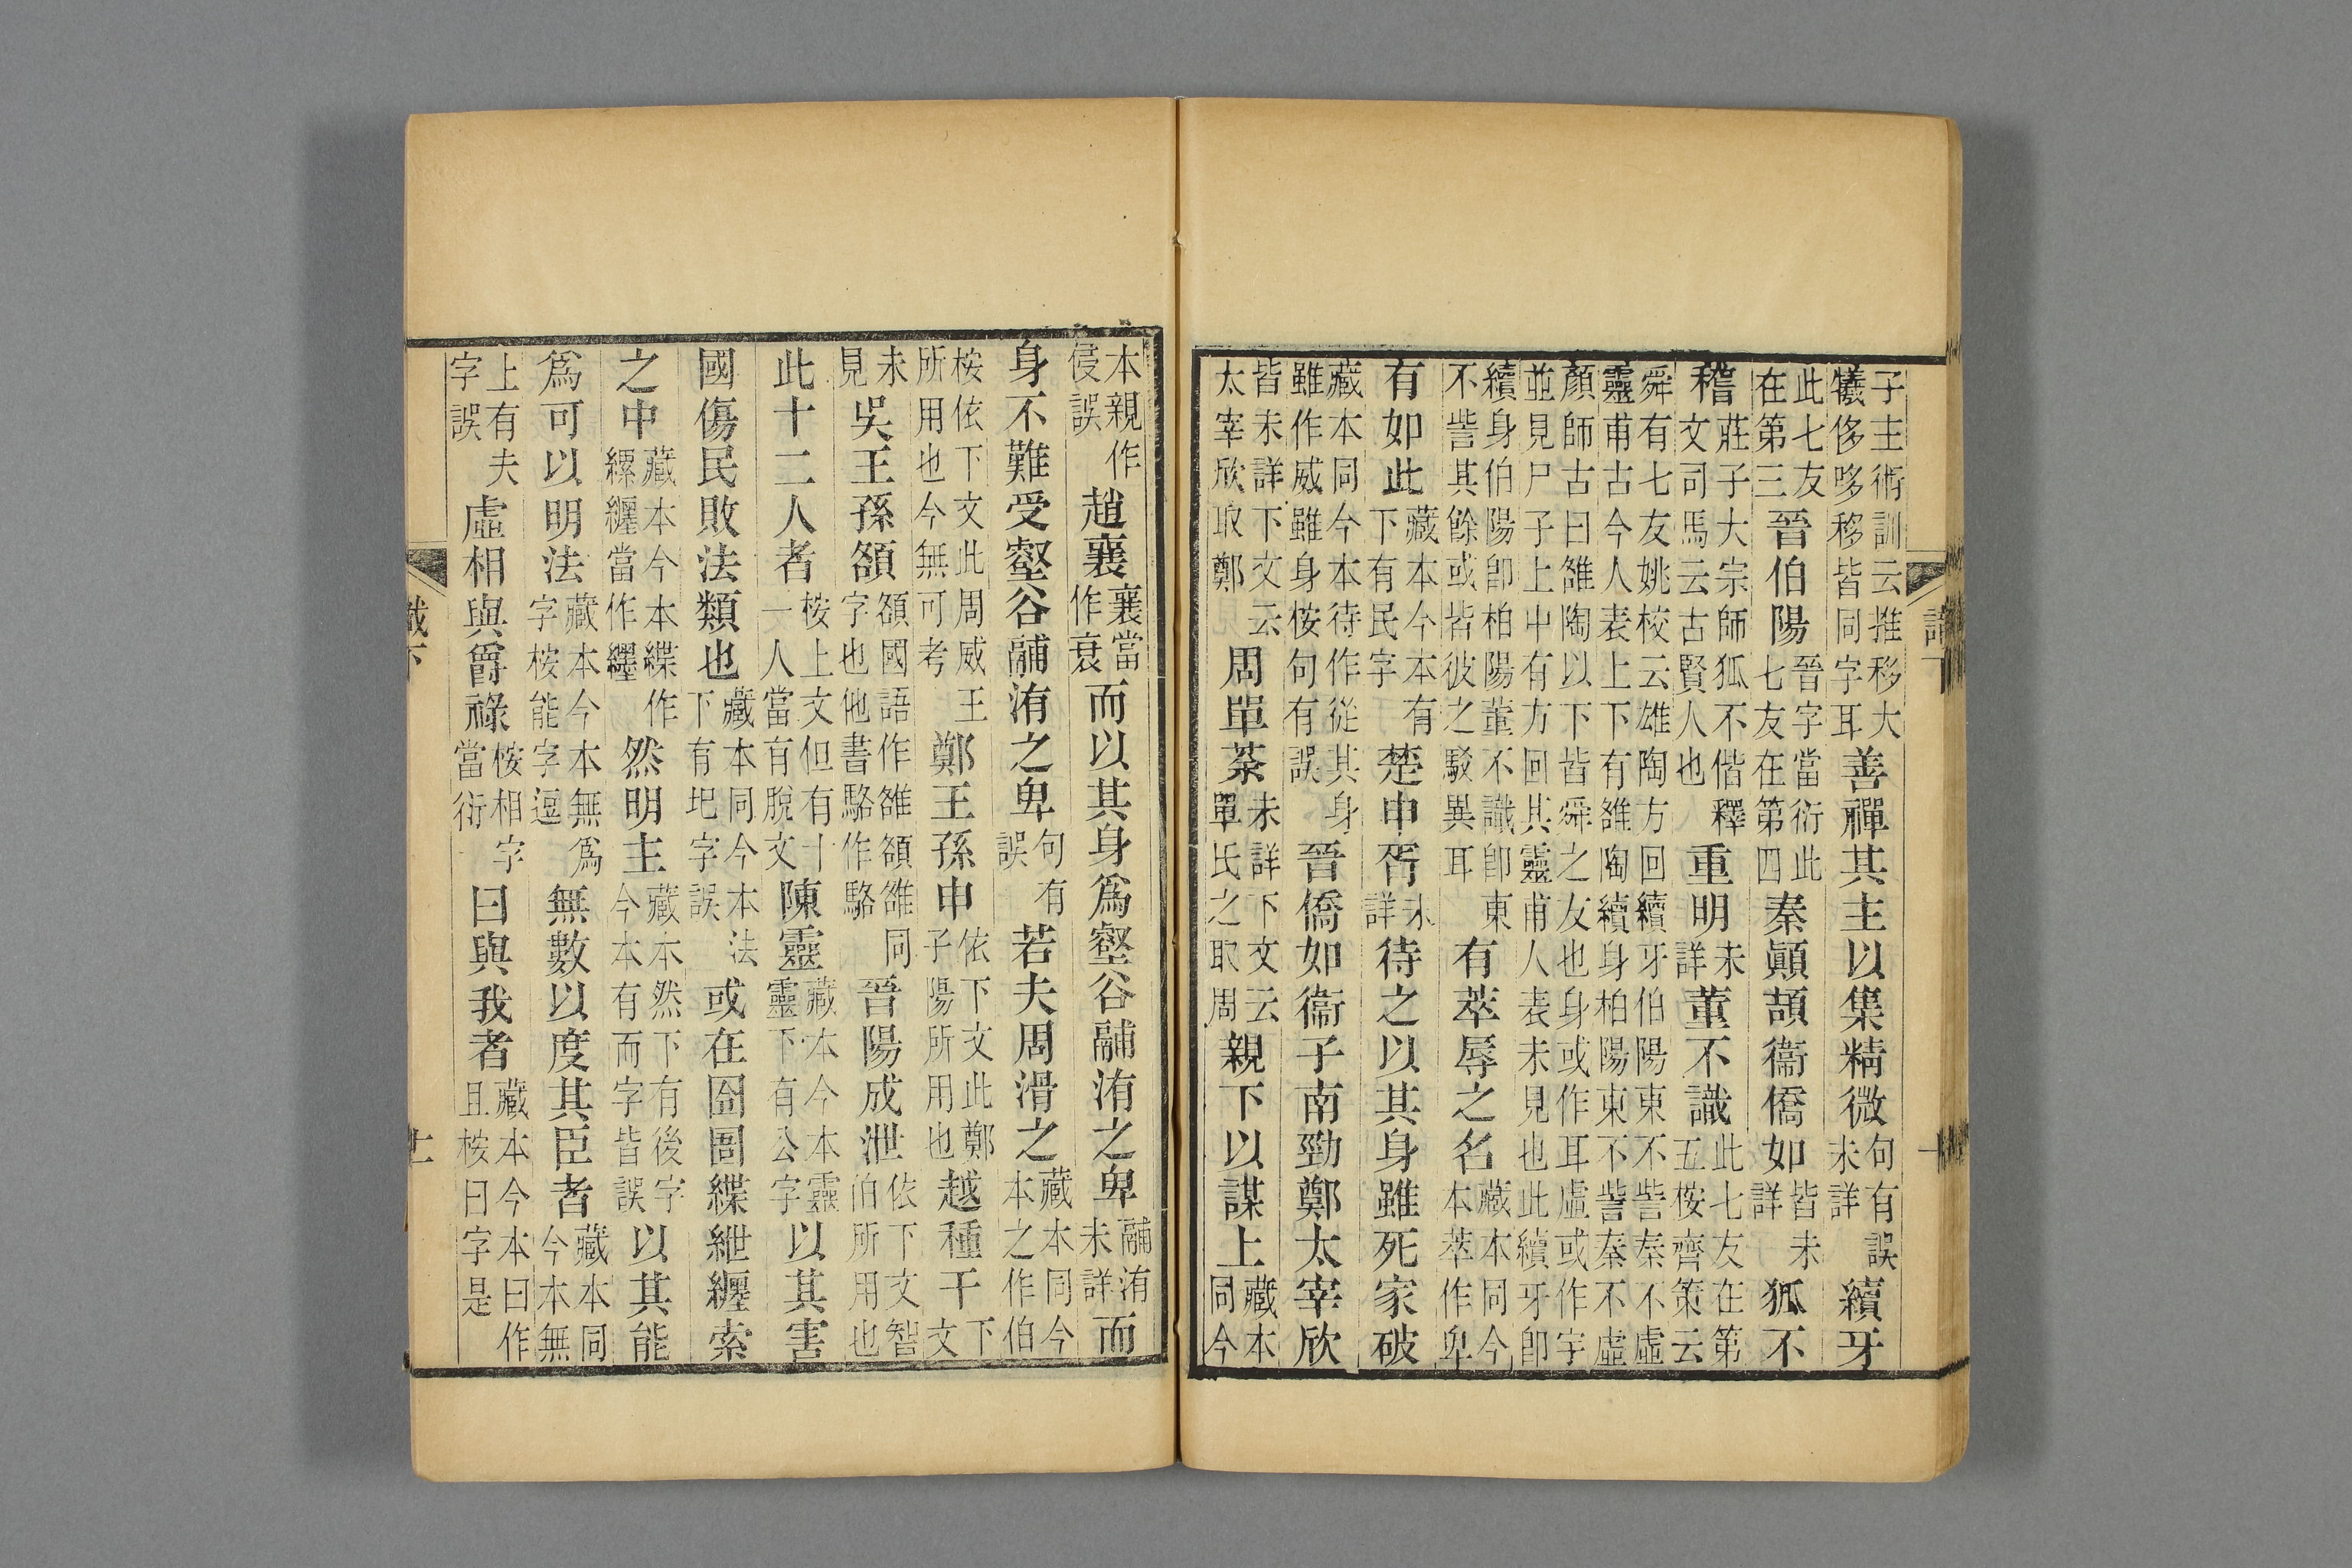 子主術訓云推移大犧侈哆移皆同字耳善禪其主以集精微句有誤未詳續牙
此七友在第三晉伯陽晉字當衍此七友在第四秦顚頡衞僑如皆未詳狐不
稽莊子大宗師狐不偕釋文司馬云古賢人也重明未詳董不識此七友在第五桉齊策云
舜有七友姚校云雄陶方回續牙伯陽東不訾秦不虛靈甫古今人表上下有雒陶續身柏陽東不訾秦不虛
顏師古曰雒陶以下皆舜之友也身或作耳虛或作宇並見尸子上中有方回其靈甫人表未見也此續牙卽
續身伯陽卽柏陽董不識卽東不訾其餘或皆彼之駁異耳有萃辱之名藏本同今本萃作卑
有如此藏本今本有下有民字楚申胥未詳待之以其身雖死家破
藏本同今本待作從其身雖作威雖身桉句有誤晉僑如衞子南勁鄭太宰欣
皆未詳下文云太宰欣取鄭周單荼未詳下文云單氏之取周親下以謀上藏本同今
本親作侵誤趙襄襄當作衰而以其身爲壑谷鬴洧之卑鬴洧未詳而
身不難受壑谷鬴洧之卑句有誤若夫周滑之藏本同今本之作伯
桉依下文此周威王所用也今無可考鄭王孫申依下文此鄭子陽所用也越種干下文
未見吳王孫頟頟國語作雒頟雒同字也他書駱作駱晉陽成泄依下文智伯所用也
此十二人者桉上文但有十一人當有脫文陳靈藏本今本靈靈下有公字以其害
國傷民敗法類也藏本同今本法下有圯字誤或在囹圄緤紲纏索
之中藏本今本緤作縲纒當作纆然明主藏本然下有後字今本有而字皆誤以其能
爲可以明法藏本今本無爲字桉能字逗無數以度其臣者藏本同今本無
上有夫字誤虛相與爵祿桉相字當衍曰與我者藏本今本曰作且桉曰字是